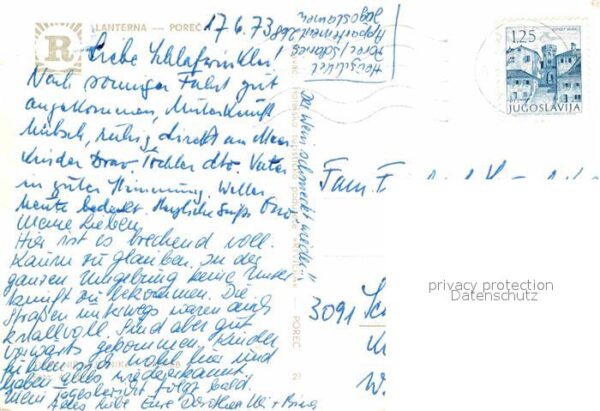 LANTERNA — POREČ
R
17.6.73
Liebe Schlafwinkler!
Nach sonniger Fahrt gut
angekommen, Unterkunft
hübsch, ruhig, direkt am Meer
Kinder brav Töchter dto. Vater
in guter Stimmung, Wetter
heute bedeckt. Herzliche Grüße
Meine Lieben,
Hier ist es brechend voll.
Kaum zu glauben, in der
ganzen Umgebung keine Unter
kunft zu bekommen. Die
Straßen unterwegs waren auch
knallvoll. Sind aber gut
vorwärts gekommen. Kinder
fühlen sich wohl hier und
haben alles wiedererkannt
Mein Tagesbericht folgt bald.
Alles Liebe Eure Dorothea
Appartement 268
Jugoslawien
Der Wein schmeckt wieder!!
POREČ
1.25
JUGOSLAVIJA
Fam.
3091
privacy protection
Datenschutz